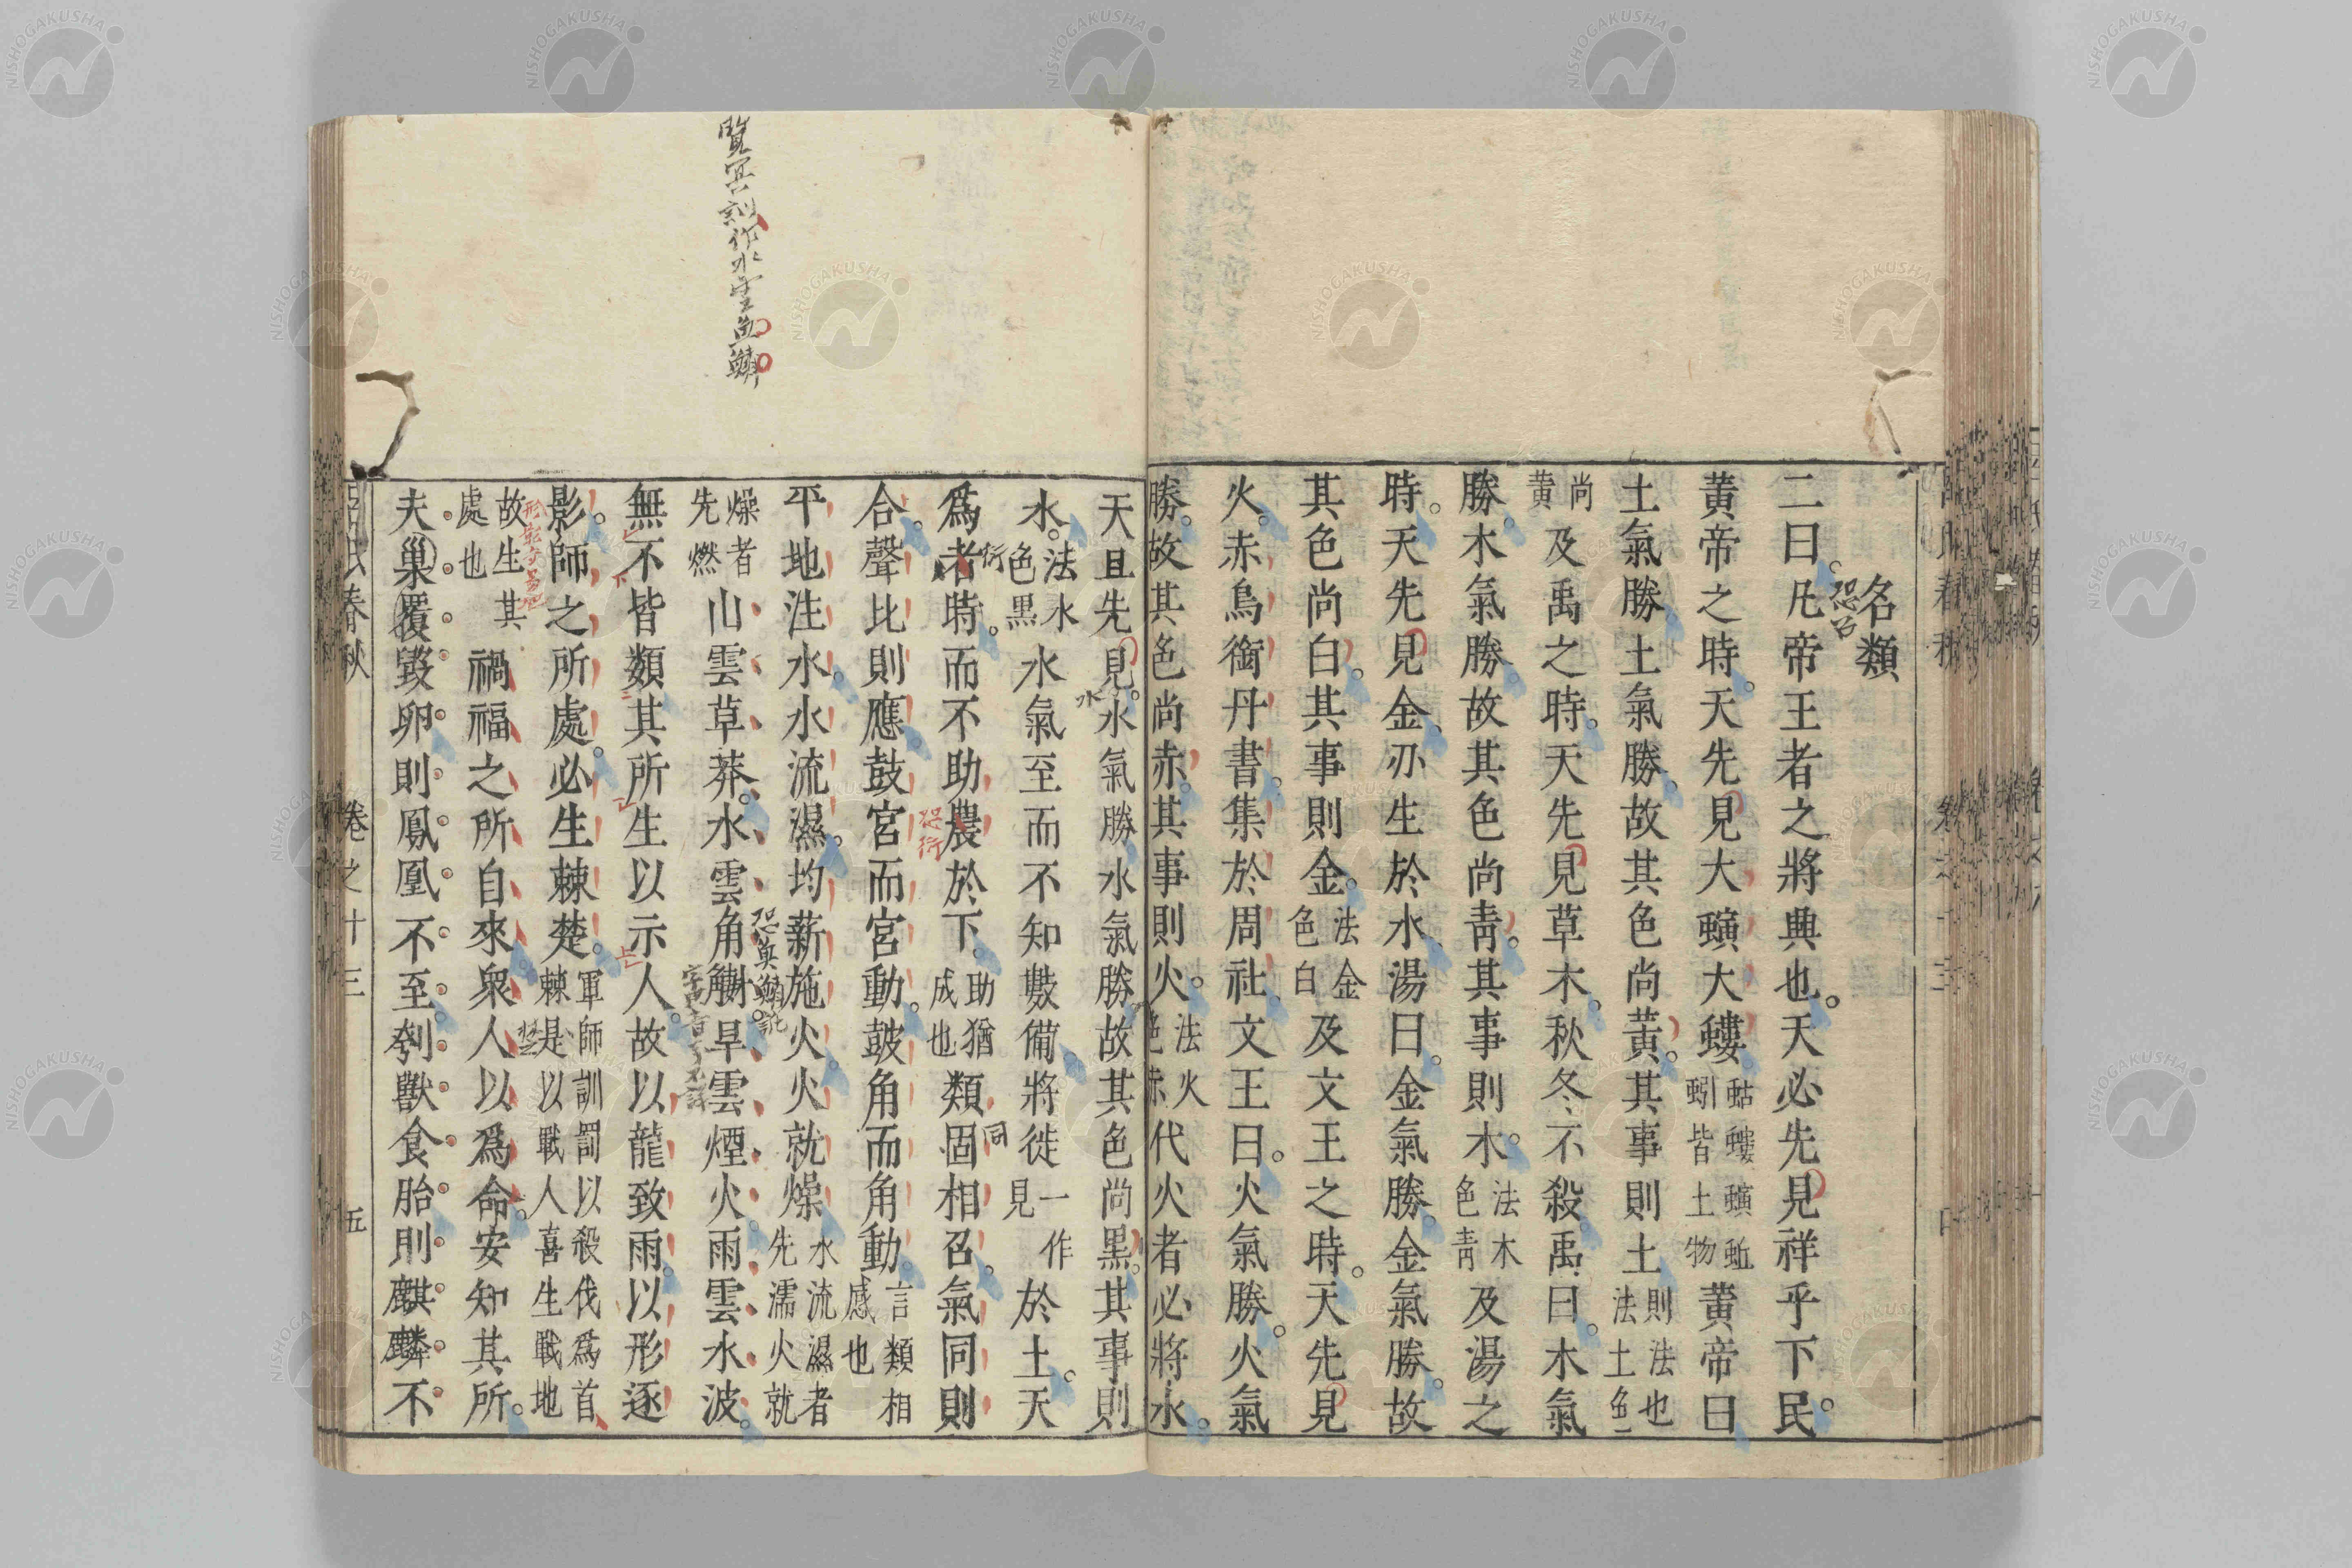 名類
恐召
二曰凡帝王者之將興也天必先見祥乎下民
黃帝之時天先見大螾大螻蛄螻螾蚯蚓皆土物黃帝曰
土氣勝土氣勝故其色尚黃其事則土則法也法土色
尚黃及禹之時天先見草木秋冬不殺禹曰木氣
勝木氣勝故其色尚靑其事則木法木色靑及湯之
時天先見金刃生於水湯曰金氣勝金氣勝故
其色尚白其事則金法金色白及文王之時天先見
火赤鳥銜丹書集於周社文王曰火氣勝火氣
勝故其色尚赤其事則火法火色赤代火者必將水
天且先見水氣勝水氣勝故其色尚黑其事則
水
水法水色黑水氣至而不知數備將徙一作見於土天
爲者時而不助農於下助猶成也類固相召氣同則
衍
恐衍
同
合聲比則應鼓宮而宮動鼓角而角動言類相感也
平地注水水流濕均薪施火火就燥水流濕者先濡火就
燥者先燃山雲草莽水雲角䚩旱雲煙火雨雲水波
覽冥訓作水雲魚鱗
無不皆類其所生以示人故以龍致雨以形逐
影師之所處必生棘楚軍師訓罰以殺伐爲首棘是以戰人喜生戰地
楚
故生其處也禍福之所自來衆人以爲命安知其所
夫巢覆毀卵則鳳凰不至刳獸食胎則麒麟不
呂氏春秋 卷之十三 五
NISHOGAKUSHA